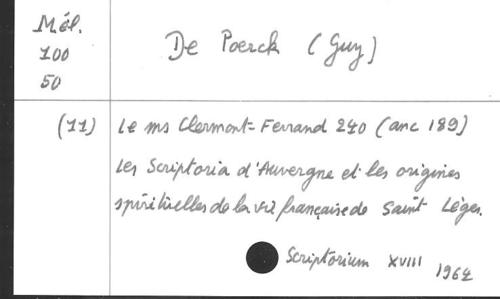 Mél.
100
50
De Poerck (Guy)
(11) Le ms Clermont-Ferrand 240 (anc 189)
Les Scriptoria d'Auvergne et les origines
spirituelles de la vie française de Saint Léger.
Scriptorium XVIII 1964